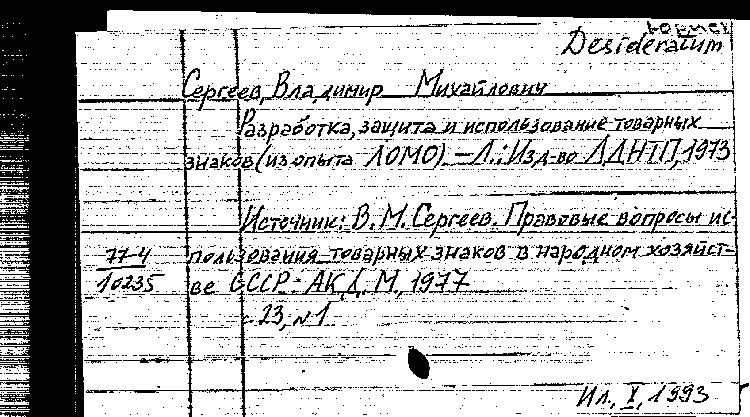 Desideratum
Сергеев, Владимир Михайлович
Разработка, защита и использование товарных
знаков (из опыта ЛОМО). – Л.: Изд-во ЛДНТП, 1973
Источник: В.М. Сергеев. Правовые вопросы ис-
77-4 пользования товарных знаков в народном хозяйст-
10235 ве СССР. - АКД. М., 1977
с. 23, №1
Ил., X, 1993